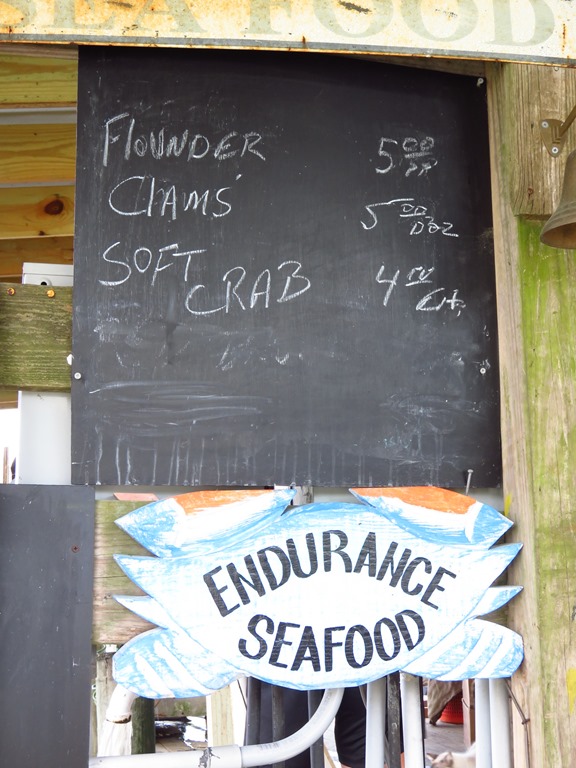 SEAFOOD
FlOUNDER 5 00
ClAMS 5 00 DOZ
SOFT CRAB 4 00
ENDURANCE
SEAFOOD